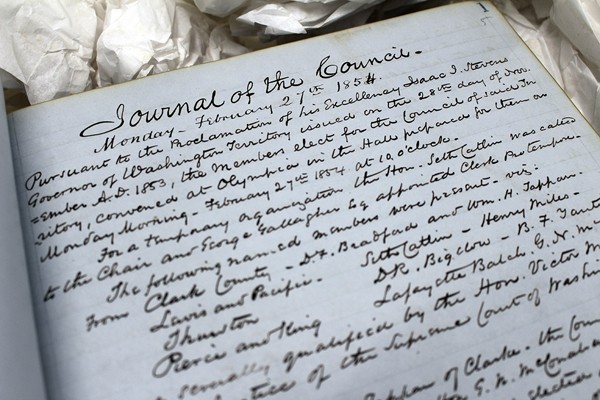 1
Journal of the Council.
Monday - February 27th 1854.
Pursuant to the Proclamation of his Excellency Isaac I. Stevens
Governor of Washington Territory issued on the 28th day of Nov-
=ember A.D. 1853, the members elect for the Council of said Ter
ritory, convened at Olympia in the Hall prepared for them on
Monday Morning - February 27th 1854 at 10 o'clock.
For a temporary organization the Hon. Seth Catlin was called
to the Chair and George Gallagher Esq appointed Clerk Protempore.
The following named members were present - viz.
From Clark County - D. F. Bradford and Wm. H. Tappan.
Lewis and Pacific - Seth Catlin - Henry Miles -
Thurston D. R. Bigelow - B. F.
Pierce and King Lafayette Balch, G. N.
severally qualified by the Hon. Victor
of the Supreme Court of
of Clarke - the
G. N. McConaha